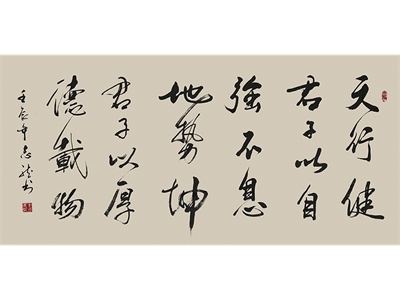 天行健
君子以自
強不息
地勢坤
君子以厚
德載物
壬辰年志龍书